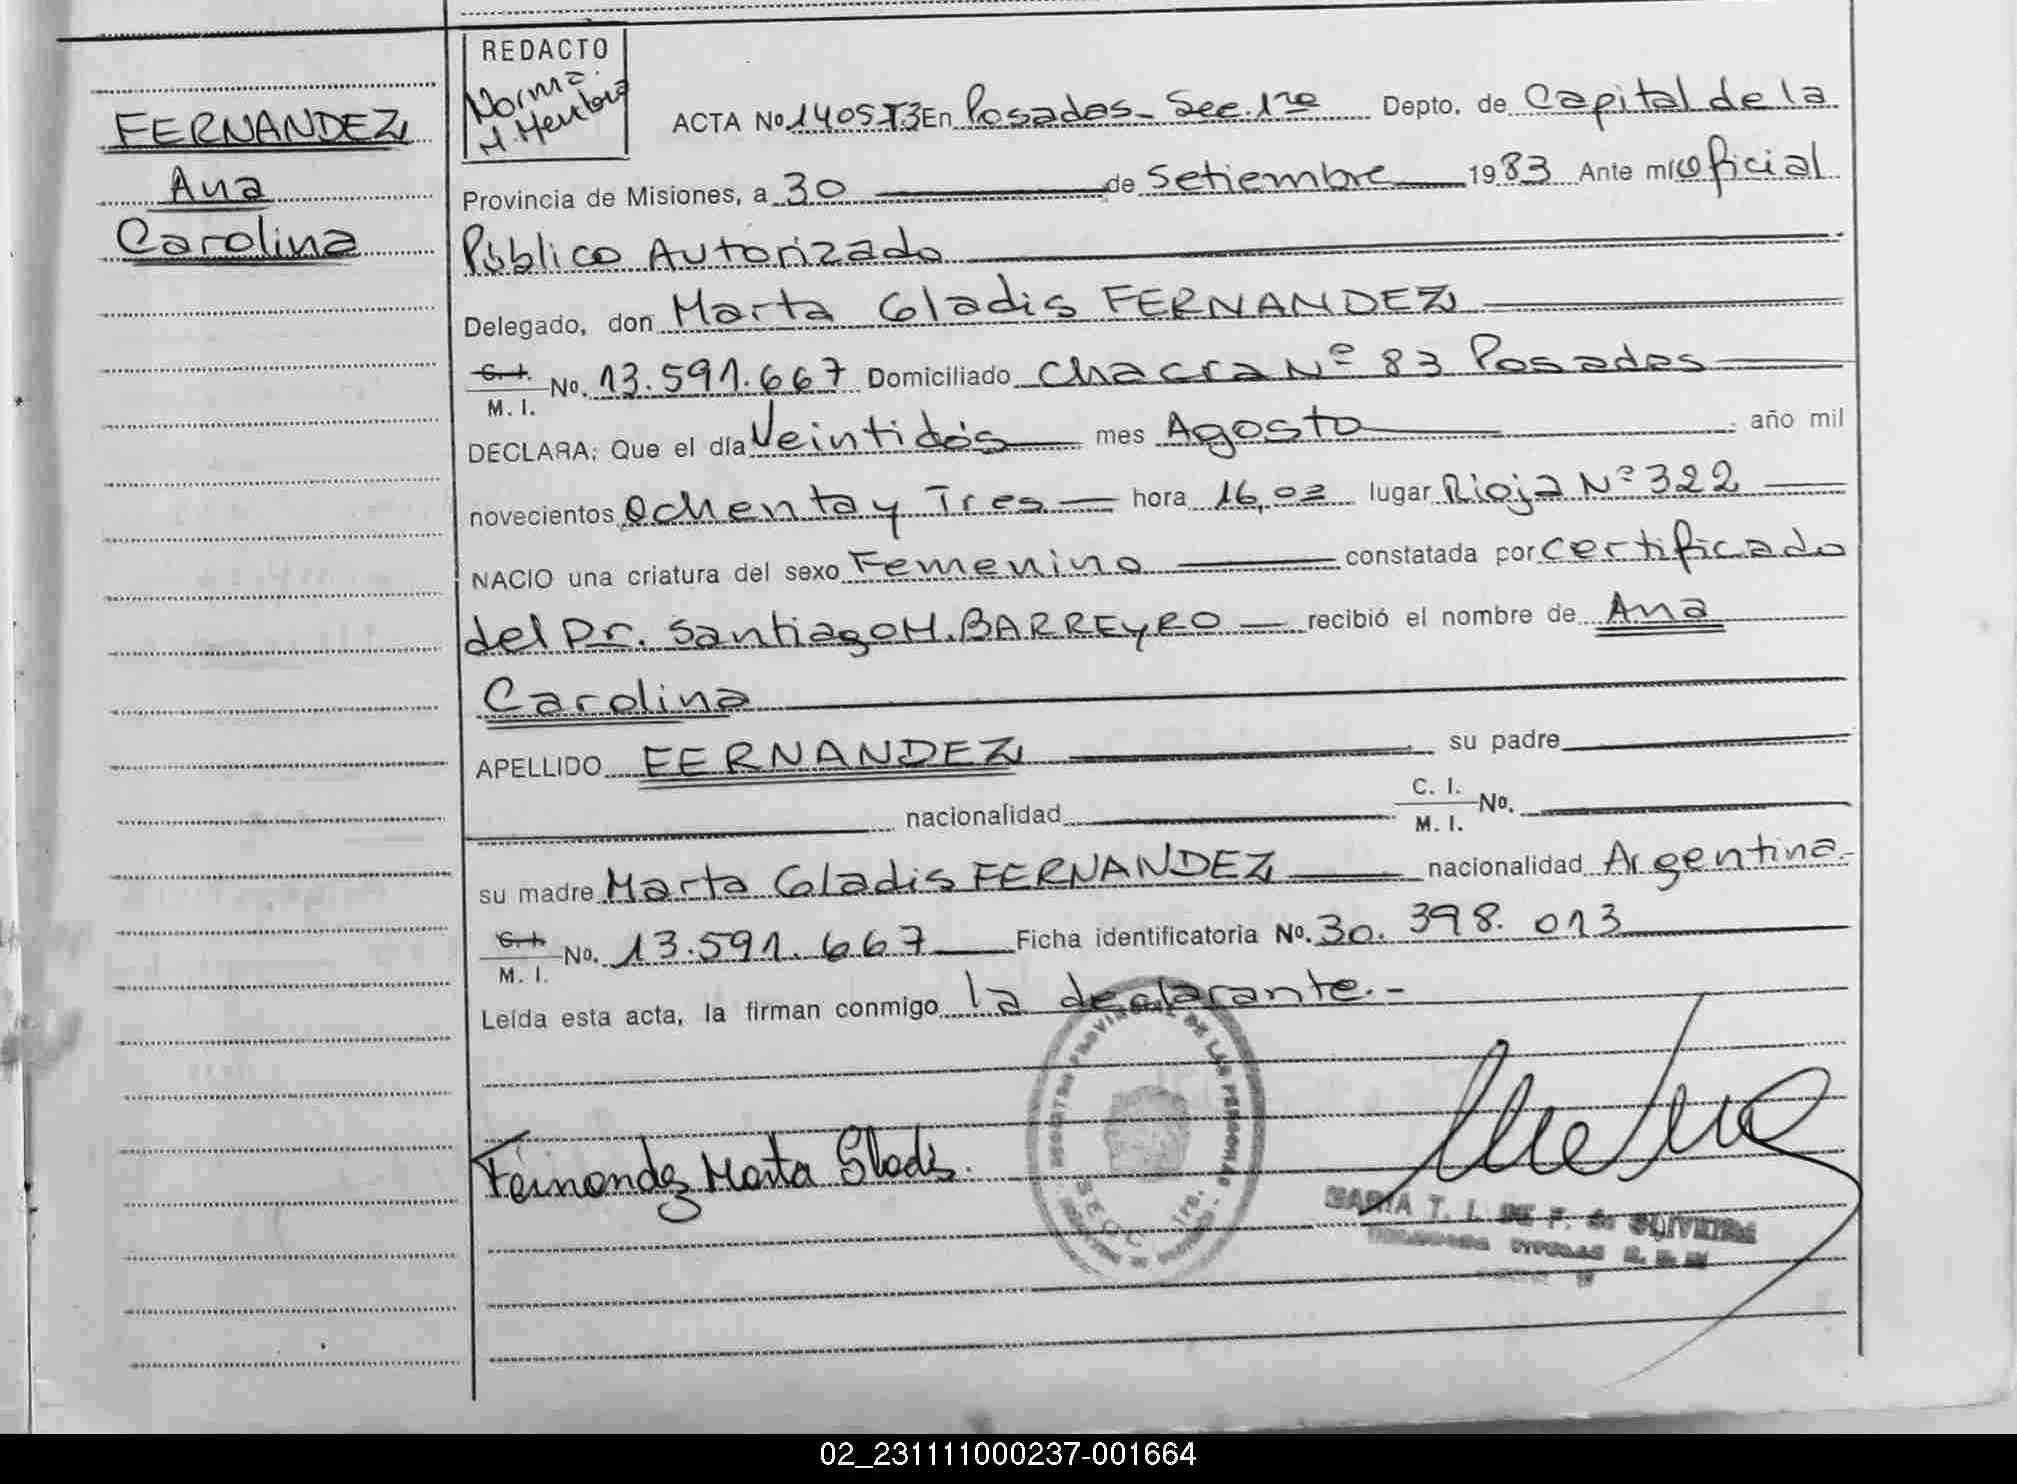 FERNANDEZ
Ana
Carolina
REDACTO
Norma
ACTA No 1405 T3 En Posadas - Sec. 1ra Depto. de Capital de la
Provincia de Misiones, a 30 de Setiembre 1983 Ante mí Oficial
Público Autorizado
Delegado, don Marta Gladis FERNANDEZ
C. I. M. I. No. 13.591.667 Domiciliado Chacra Nº 83 Posadas
DECLARA: Que el día Veintidós mes Agosto año mil
novecientos Ochenta y Tres hora 16,02 lugar Rioja Nº 322
NACIO una criatura del sexo Femenino constatada por certificado
del Dr. Santiago H. BARREYRO recibió el nombre de Ana
Carolina
APELLIDO FERNANDEZ su padre
nacionalidad C. I. M. I. No.
su madre Marta Gladis FERNANDEZ nacionalidad Argentina.-
C. I. M. I. No. 13.591.667 Ficha identificatoria No. 30.398.013
Leída esta acta, la firman conmigo la declarante.-
Fernandez Marta Gladis.
DE LAS PERSONAS
SECC. 1ra.
MARIA T. I. DE F. de OLIVEIRA
02_231111000237-001664